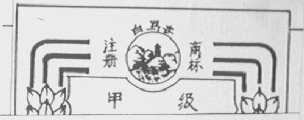 注册
商标
甲级